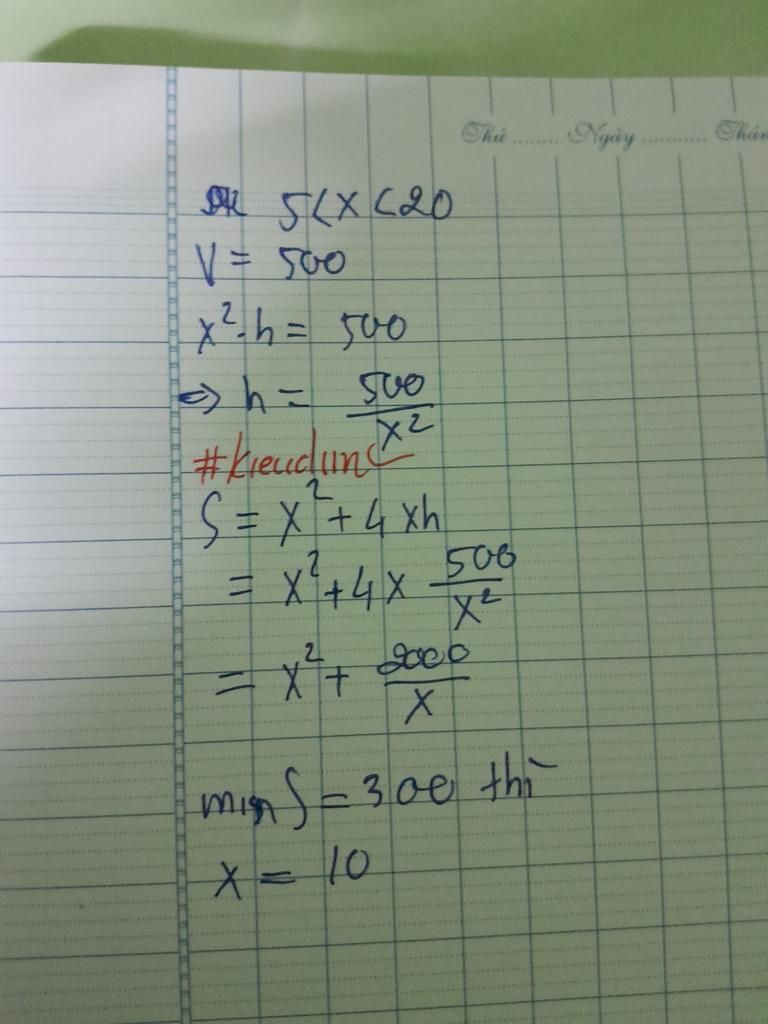 Thứ ........ Ngày ........... Thán
ĐK 5<x<20
V = 500
x².h = 500
=> h = 500/x²
#kieudung
S = x² + 4xh
= x² + 4x 500/x²
= x² + 2000/x
min S = 300 thì
x = 10